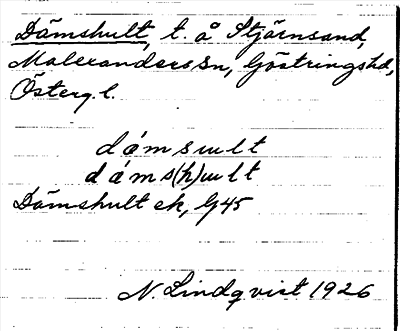 Dämshult, t. å Stjärnsand,
Malexanders sn, Göstringshd,
Österg. l.
dámsult
dáms(h)ult
Dämshult ek, G45
N. Lindqvist 1926